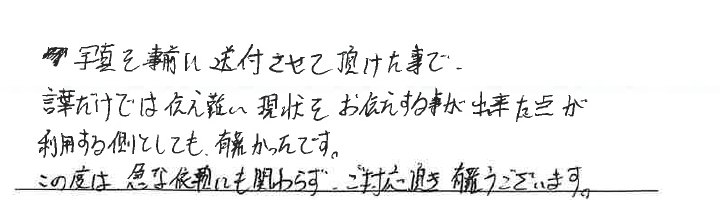 写真を事前に送付させて頂けた事で、
言葉だけでは伝え難い現状をお伝えする事が出来た点が
利用する側としても、有難かったです。
この度は急な依頼にも関わらず、ご対応頂き有難うございます。